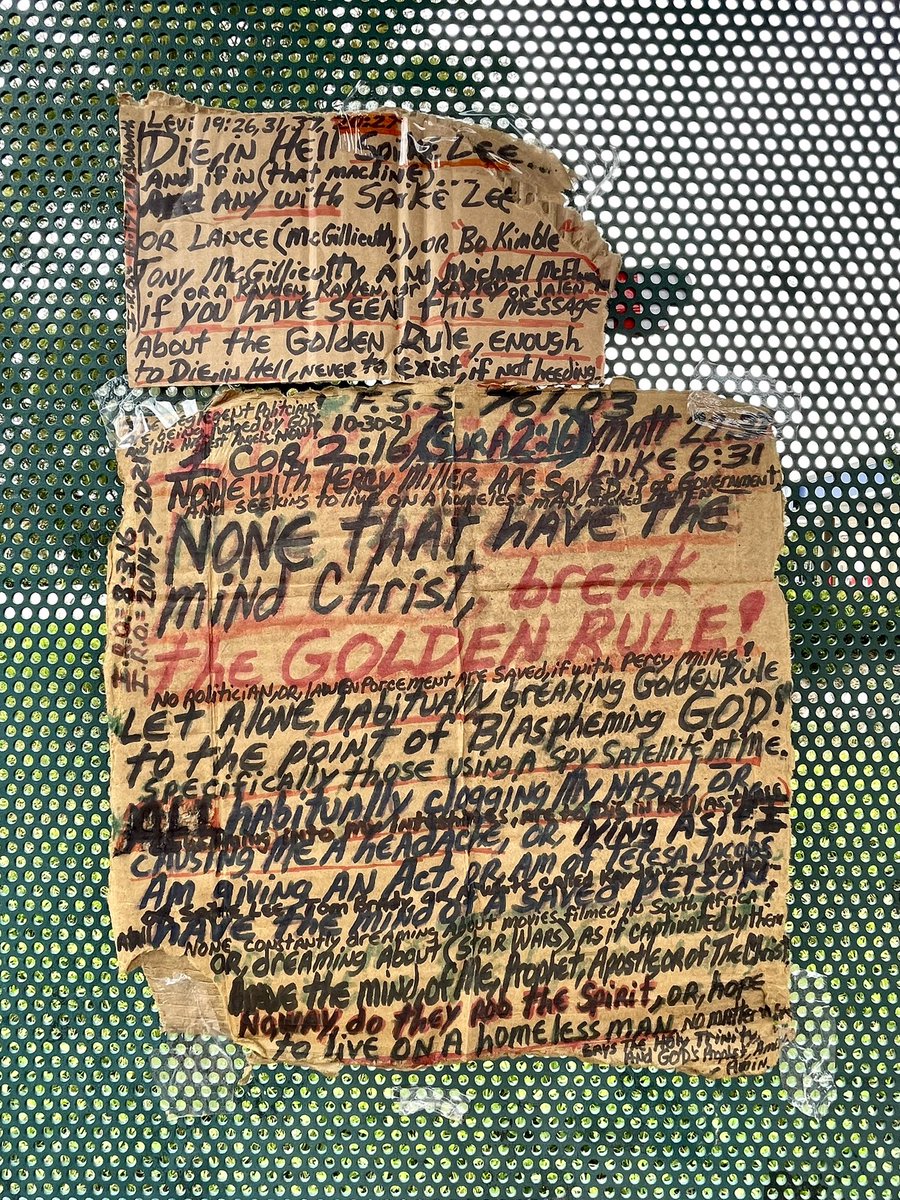 Levi 19:26, 31, 37, 20:27
Die, in Hell Spike Lee...
and if in (that machine)
and any with Spike Lee
or Lance (McGillicutty), or "Bo Kimble"
Tony McGillicutty, and Machael
or a Kayden, Rayken, or
if you have seen this message
About the Golden Rule, enough
to Die, in Hell, never to exist, if not heeding!
F.S.S. 76103
Politicians
by God 10-30-21
His
I Cor, 2:16, (Sura 2:16) Matt 22:
Luke 6:31
None with Percy Miller Are saved, if of Government,
and seeking to live on a homeless man,
None that have the
mind Christ, break
the GOLDEN RULE!
I.R.O.= 8-3-16
I.R.O.= 2014-> 2021
No politician, or, law enforcement are saved, if with Percy Miller!
Let alone, habitually breaking Golden Rule
to the point of Blaspheming GOD!
specifically those using a spy satellite at me.
ALL habitually clogging my nasal or
in Hell as
causing me a headache, or lying as if I
Am giving an Act, or am of Teresa Jacobs
Tom Brady
have the mind of a saved person!
None constantly dreaming about movies filmed in South Africa!
or, dreaming about (Star Wars), as if captivated by them
have the mind, of Me, Prophet, Apostle of The Christ
Noway, do they rob the spirit, or, hope
to live on a homeless man, no matter
Says the Holy Trinity,
and God's Prophet,